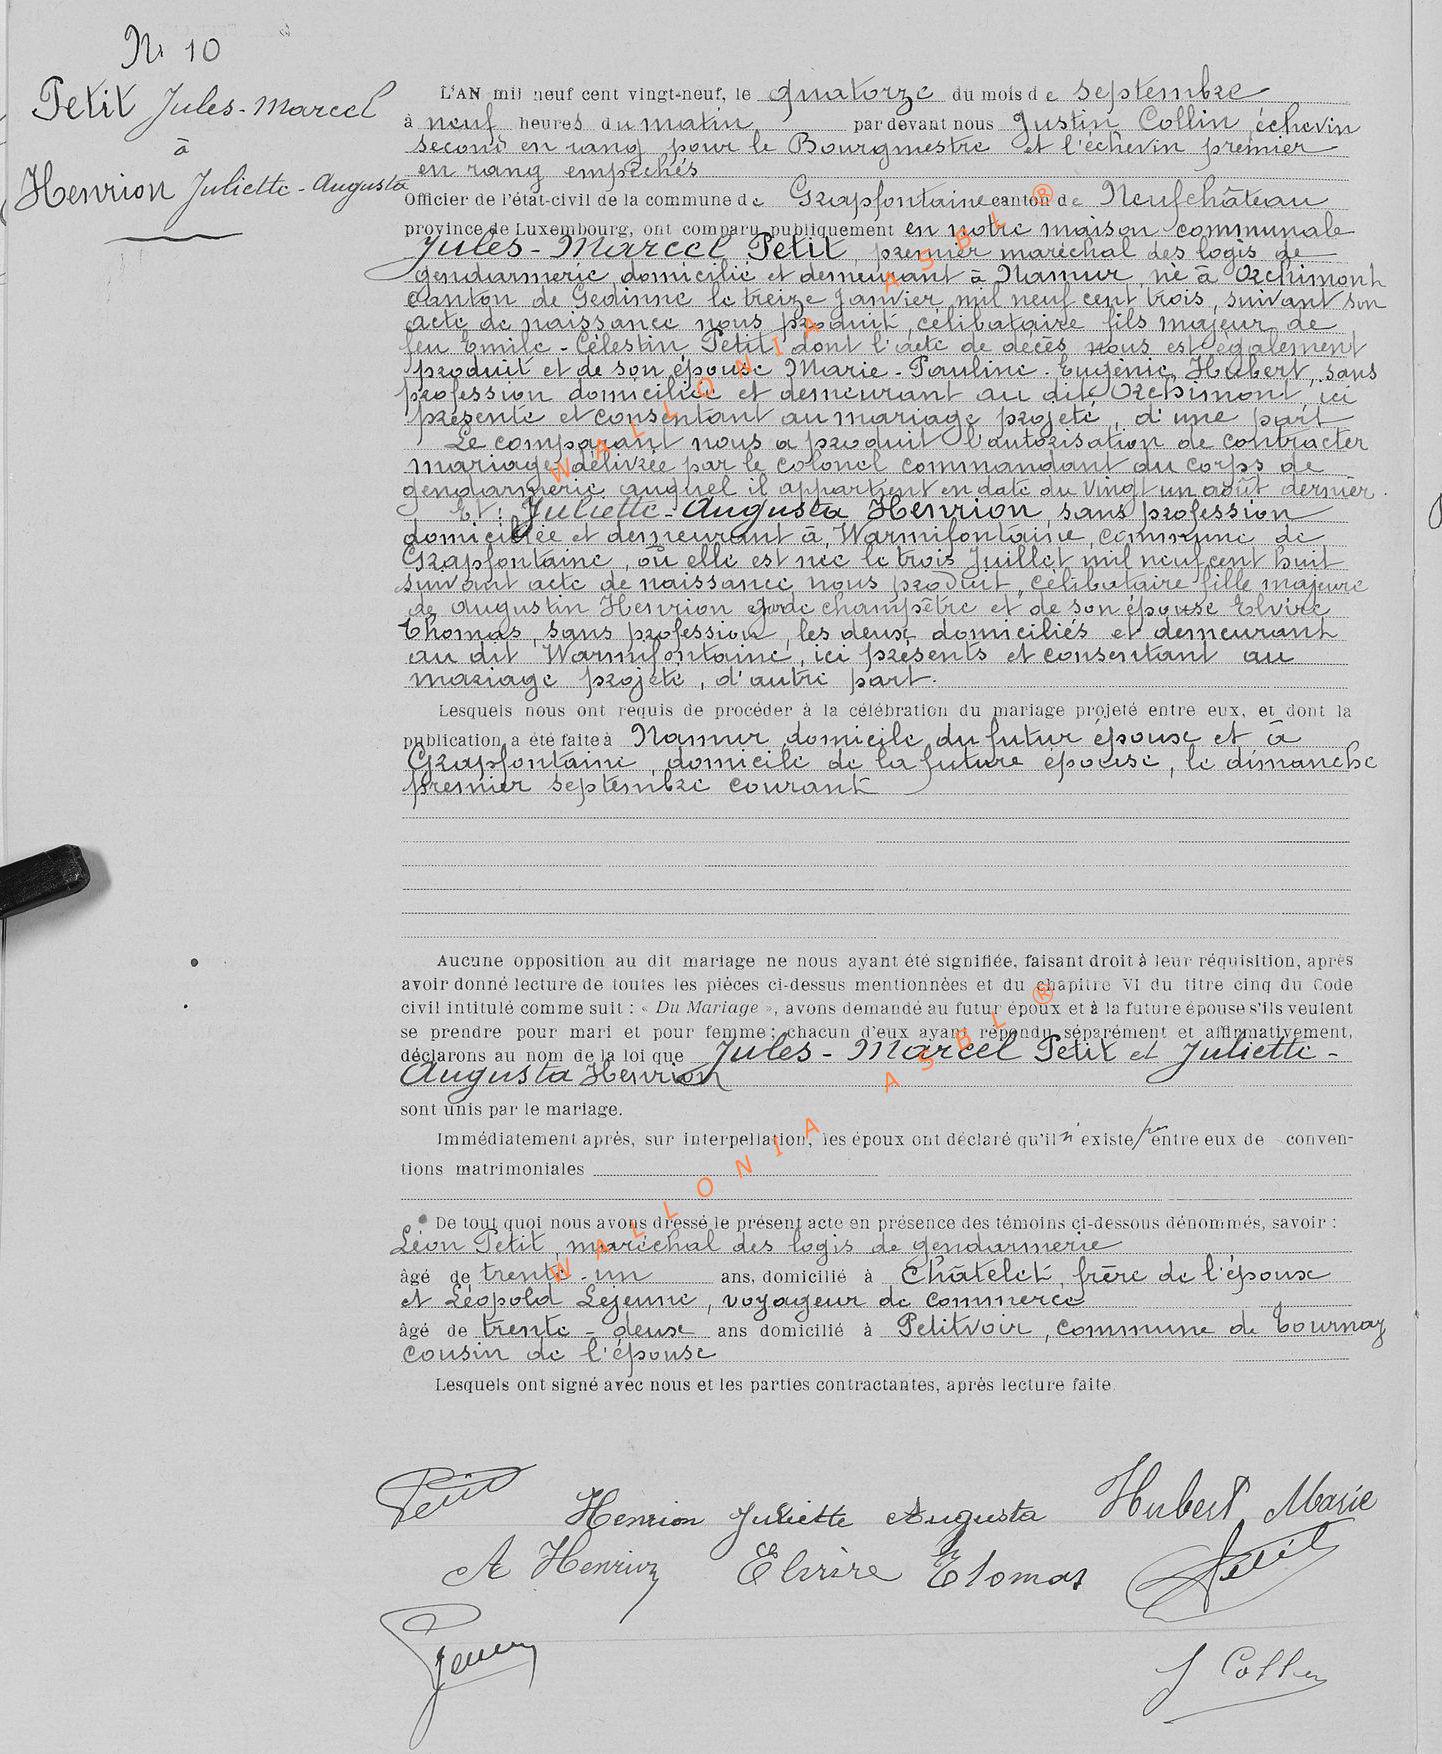 N° 10
Petit Jules-Marcel
à
Henrion Juliette-Augusta
L'AN mil neuf cent vingt-neuf, le quatorze du mois de septembre
à neuf heures du matin par devant nous Justin Collin, échevin
second en rang pour le Bourgmestre et l'échevin premier
en rang empêchés
Officier de l'état-civil de la commune de Grapfontaine canton de Neufchâteau
province de Luxembourg, ont comparu publiquement en notre maison communale
Jules-Marcel Petit, premier maréchal des logis de
gendarmerie domicilié et demeurant à Namur, né à Orchimont
canton de Gedinne le treize Janvier mil neuf cent trois, suivant son
acte de naissance nous produit, célibataire fils majeur de
feu Emile-Célestin Petit dont l'acte de décès nous est également
produit et de son épouse Marie-Pauline-Eugénie Hubert, sans
profession domiciliée et demeurant au dit Orchimont, ici
présente et consentant au mariage projeté, d'une part
Le comparant nous a produit l'autorisation de contracter
mariage délivrée par le colonel commandant du corps de
gendarmerie auquel il appartient en date du vingt un août dernier.
Et: Juliette-Augusta Henrion, sans profession
domiciliée et demeurant à Warmifontaine, commune de
Grapfontaine, où elle est née le trois Juillet mil neuf cent huit
suivant acte de naissance nous produit, célibataire fille majeure
de Augustin Henrion garde champêtre et de son épouse Elvire
Thomas, sans profession, les deux domiciliés et demeurant
au dit Warmifontaine, ici présents et consentant au
mariage projeté, d'autre part.
Lesquels nous ont requis de procéder à la célébration du mariage projeté entre eux, et dont la
publication a été faite à Namur domicile du futur époux et à
Grapfontaine, domicile de la future épouse, le dimanche
premier septembre courant
Aucune opposition au dit mariage ne nous ayant été signifiée, faisant droit à leur réquisition, après
avoir donné lecture de toutes les pièces ci-dessus mentionnées et du chapitre VI du titre cinq du Code
civil intitulé comme suit : « Du Mariage », avons demandé au futur époux et à la future épouse s'ils veulent
se prendre pour mari et pour femme ; chacun d'eux ayant répondu séparément et affirmativement,
déclarons au nom de la loi que Jules-Marcel Petit et Juliette-
Augusta Henrion
sont unis par le mariage.
Immédiatement après, sur interpellation, les époux ont déclaré qu'il n'existe pas entre eux de conven-
tions matrimoniales
De tout quoi nous avons dressé le présent acte en présence des témoins ci-dessous dénommés, savoir :
Léon Petit, maréchal des logis de gendarmerie
âgé de trente-un ans, domicilié à Châtelet, frère de l'époux
et Léopold Lejeune, voyageur de commerce
âgé de trente-deux ans domicilié à Petitvoir, commune de Tournay
cousin de l'épouse
Lesquels ont signé avec nous et les parties contractantes, après lecture faite.
Petit Henrion Juliette Augusta Hubert Marie
A Henrion Elvire Thomas Petit
Lejeune
J Collin
WALLONIA ASBL ®
WALLONIA ASBL ®